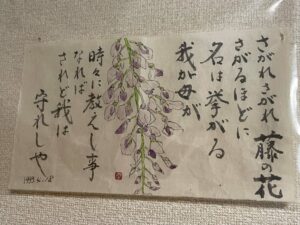 藤の花
さがれさがれ
さがるほどに
名は挙がる
我が母が
時々に教えし事
なれば
されど我は
守れしや